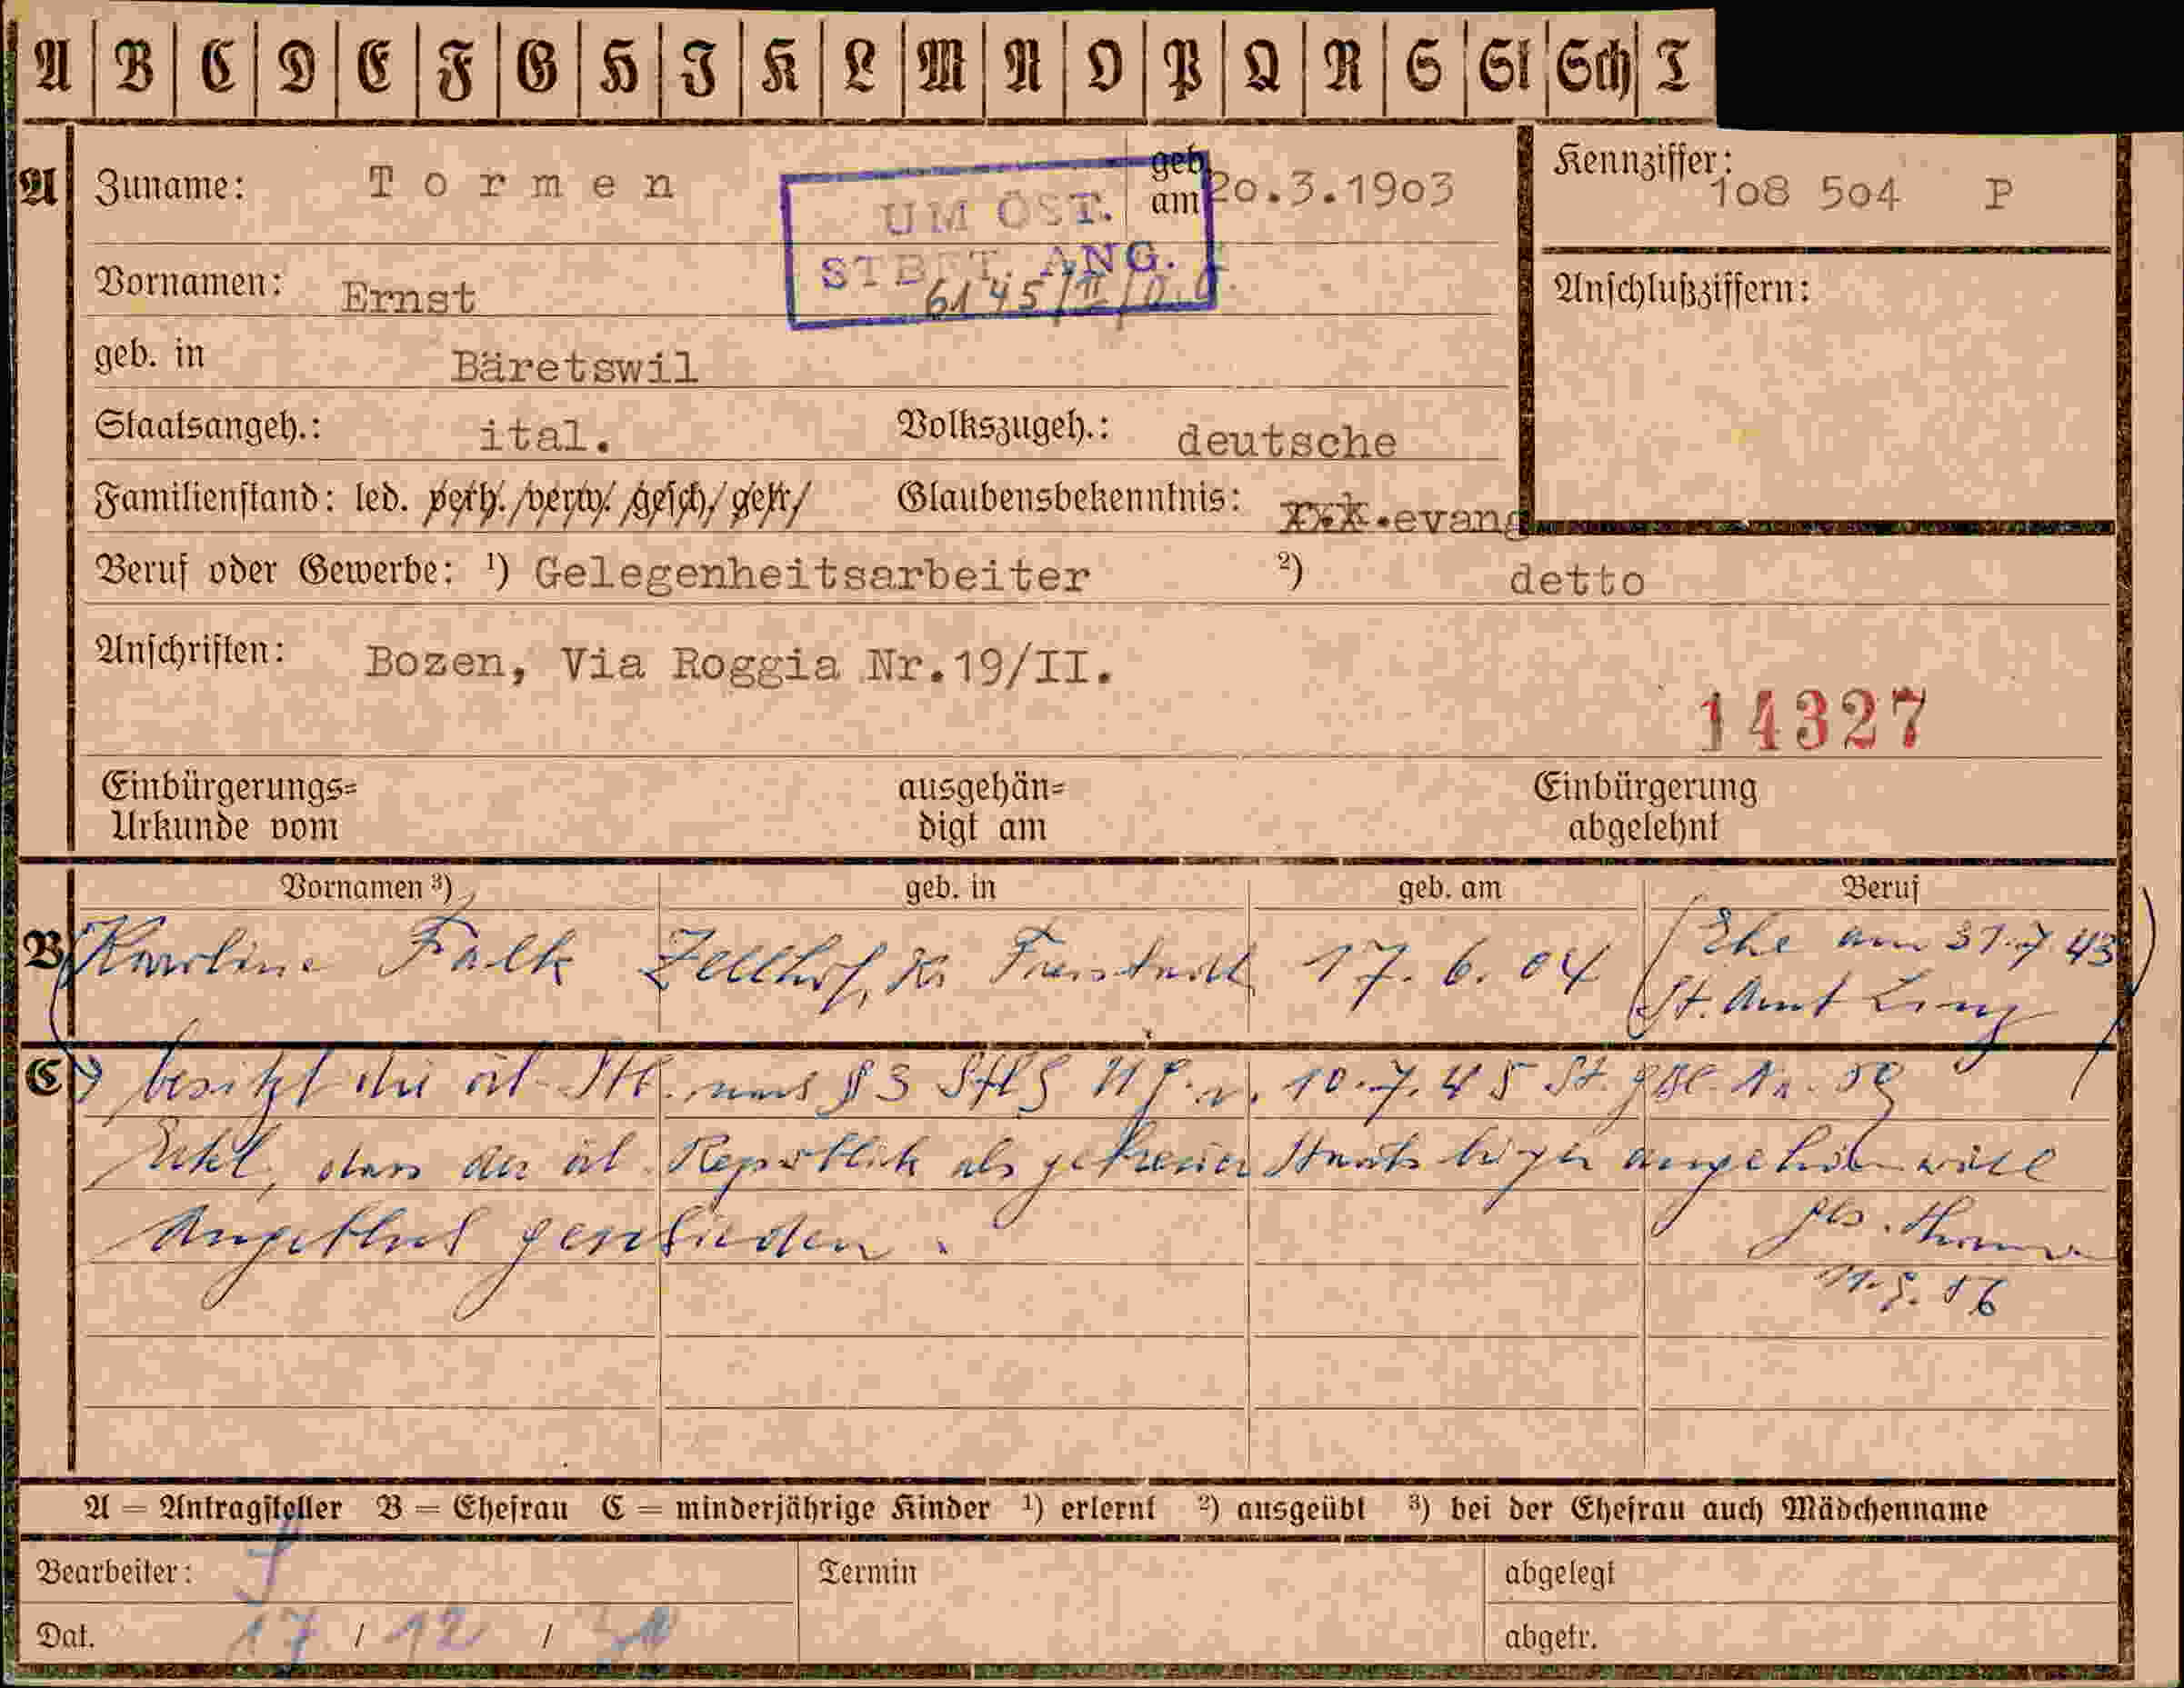 A B C D E F G H I K L M N O P Q R S St Sch T
A Zuname: Tormen geb. am 20.3.1903 Kennziffer: 108 504 P
UM ÖST.
STBFT. ANG.
6145/II/
Vornamen: Ernst Anschlußziffern:
geb. in Bäretswil
Staatsangeh.: ital. Volkszugeh.: deutsche
Familienstand: led. verh./verw./gesch/getr/ Glaubensbekenntnis: evang
Beruf oder Gewerbe: ¹) Gelegenheitsarbeiter ²) detto
Anschriften: Bozen, Via Roggia Nr.19/II.
14327
Einbürgerungs=
Urkunde vom
ausgehän=
digt am
Einbürgerung
abgelehnt
Vornamen ³) geb. in geb. am Beruf
B Karoline Falk Zellhof, Freistadt 17. 6. 04 (Ehe am 31.7.43
St. Amt Linz)
C besitzt die öst. Stb. § 3 10.7.45 St.
dass der öst. Republik als getreuer Staatsbürger angehören will
Angeblich geschieden.
A = Antragsteller B = Ehefrau C = minderjährige Kinder ¹) erlernt ²) ausgeübt ³) bei der Ehefrau auch Mädchenname
Bearbeiter: Termin abgelegt
Dat. 17 / 12 / abgetr.